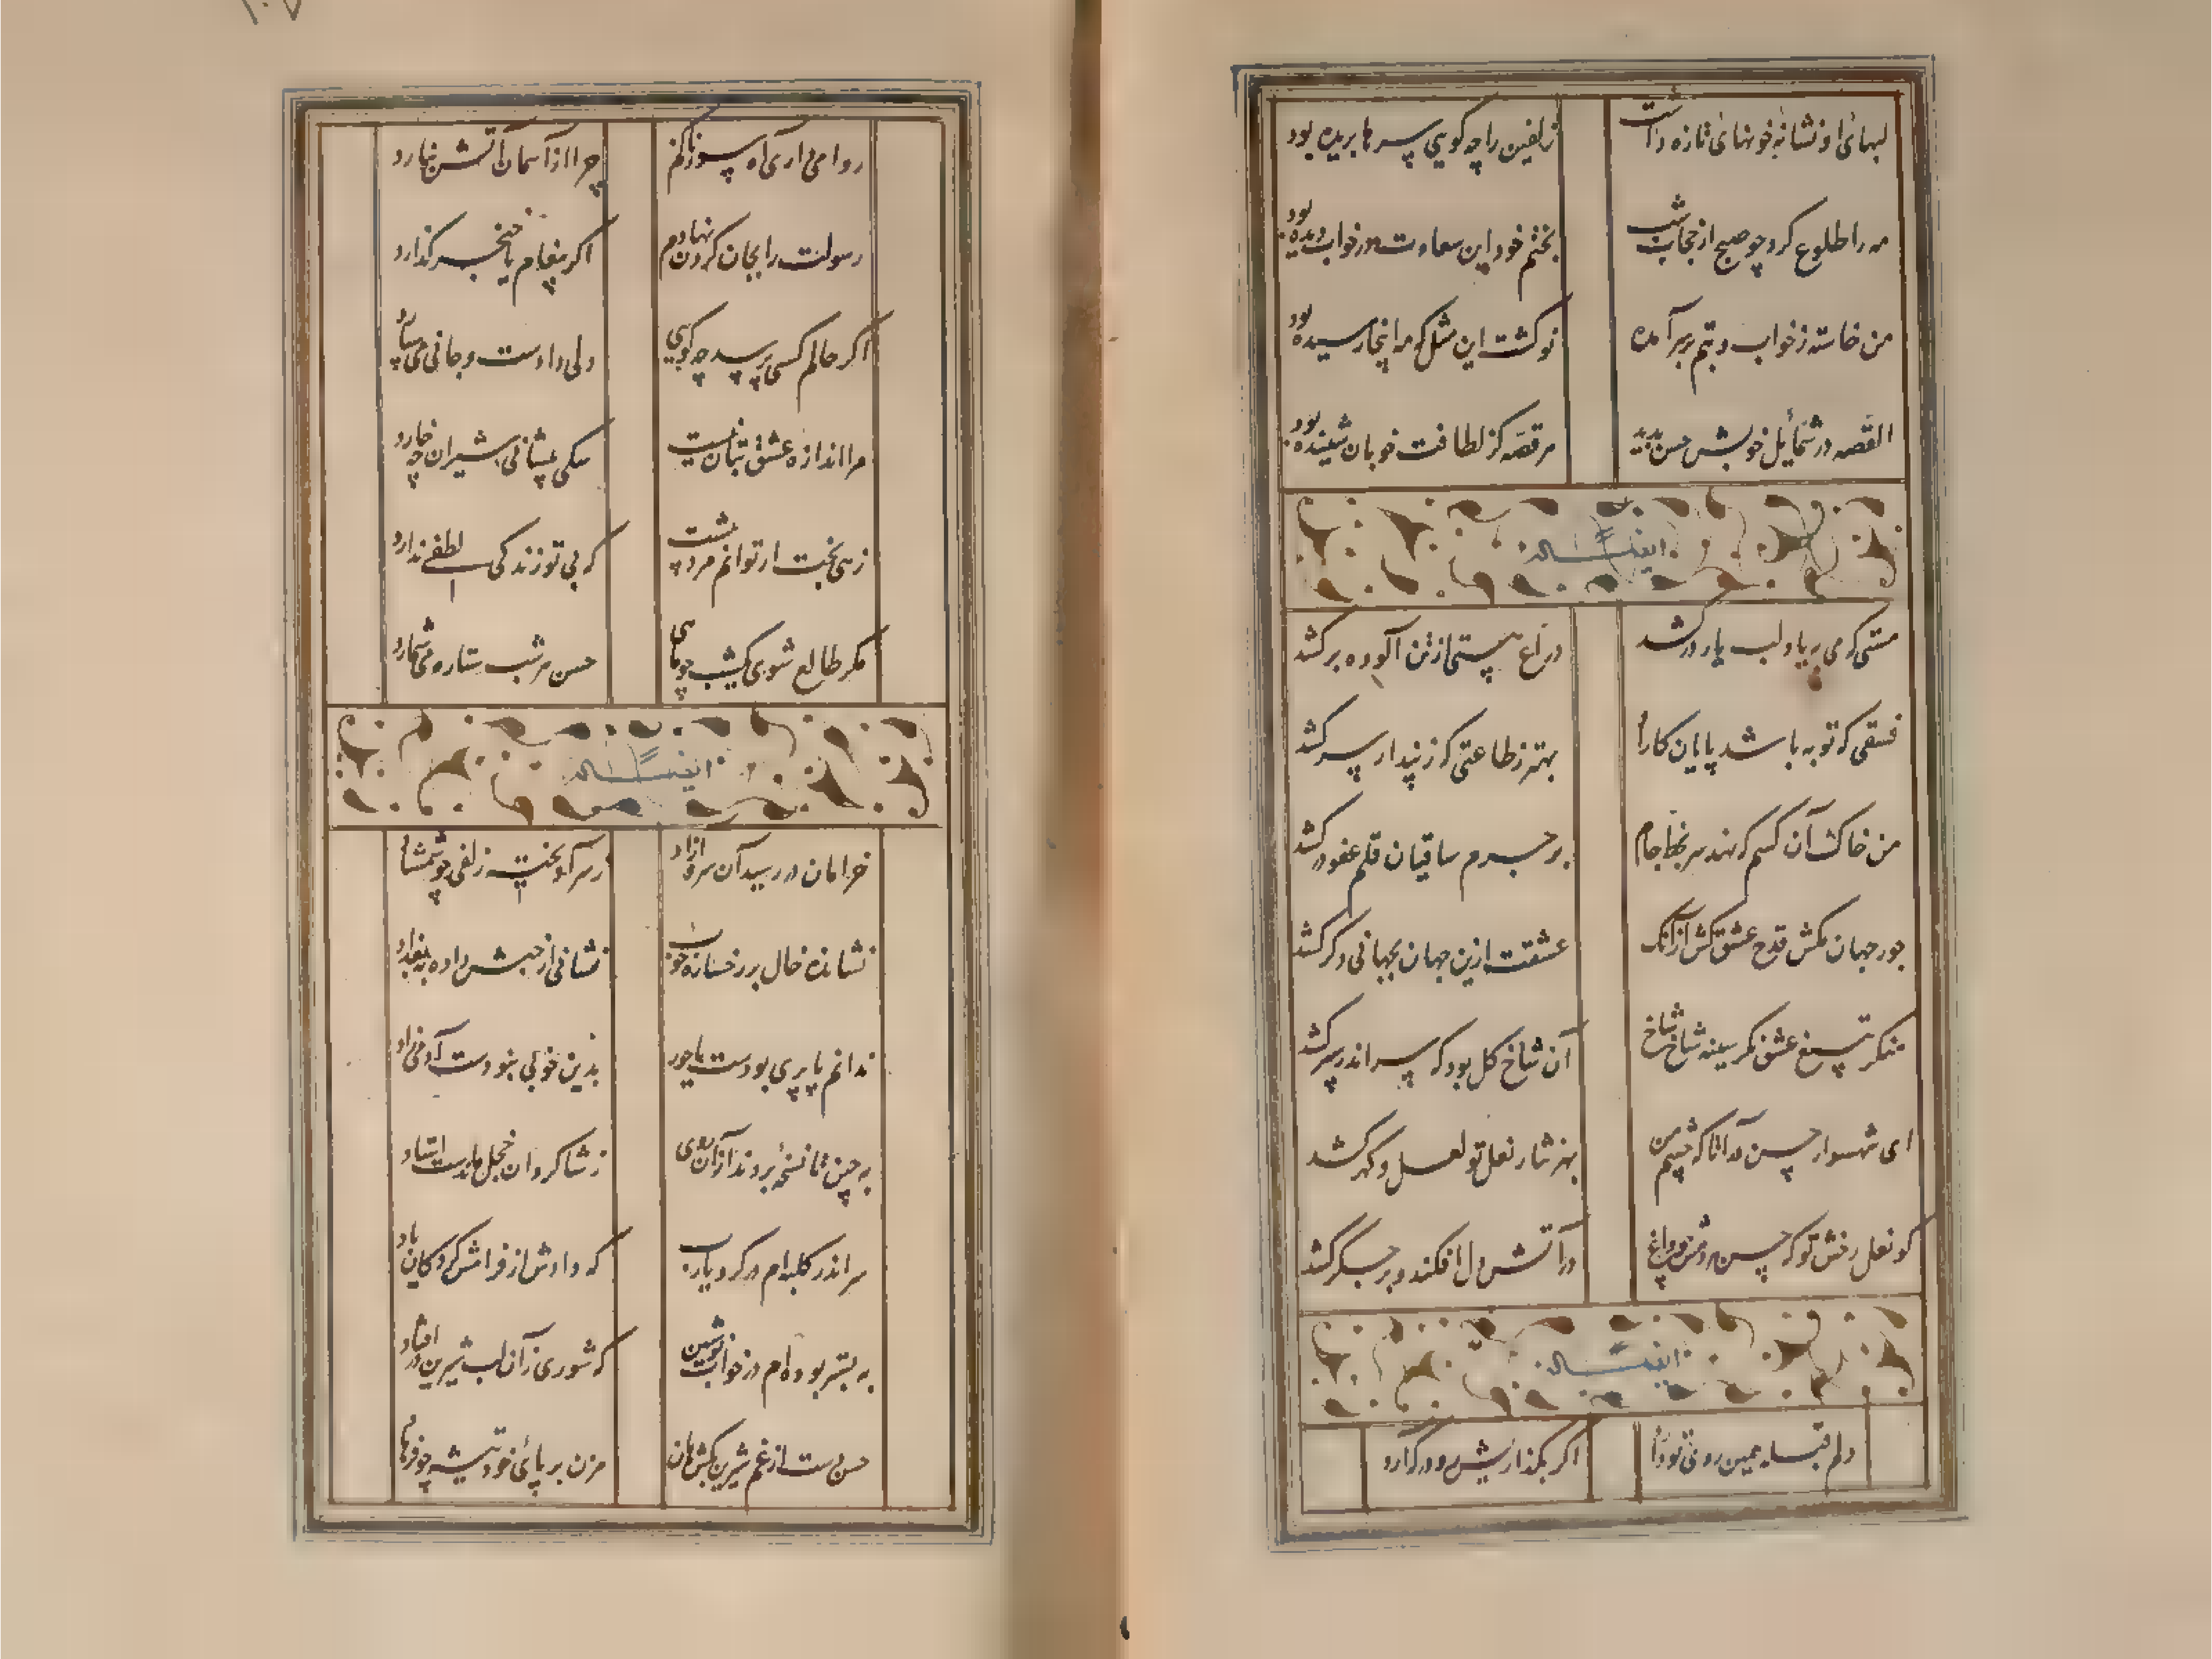 ۱۰۷
لبهائی او نشانهٔ خونهائی تازه داشت
زلفین را چه گویی سرها بریده بود
مه را طلوع کرد چو صبح از حجاب شب
بختم خود این سعادت در خواب دیده بود
من خاسته ز خواب و بتم بر سر آمده
نو گشت این مثل که مه اینجا رسیده بود
القصه در شمایل خوبش حسن بدید
هر قصه کز لطافت خوبان شنیده بود
ایضاً له
مستی که می به یاد لب یار در کشد
دراعه هستی از تن آلوده بر کشد
فسقی که توبه باشد پایان کار او
بهتر ز طاعتی که ز پندار سر کشد
من خاک آن کسم که نهد سر بخط جام
بر جرم ساقیان قلم عفو در کشد
جور جهان مکش قدح عشق کش از آنک
عشقت ازین جهان بجهانی دگر کشد
منگر تیغ عشق نگر سینه شاخ شاخ
آن شاخ گل بود که سر اندر سپر کشد
ای شهسوار حسن که چشم من
بهر نثار نعل تو لعل و گهر کشد
کو نعل رخش تو که حسن
در آتش دل افکند و بر جگر کشد
ایضاً له
دلم قبله همین روی تو دارد
اگر بگذاریش رو در که آرد
روا می داری آه سوزناکم
چرا از آسمان آتش نبارد
رسولت را بجان گردن نهادم
اگر پیغام یا خنجر گذارد
اگر حالم کسی پرسد چه گویی
دلی دادست و جانی می سپارد
مرا اندازه عشق بتان نیست
سگی پیشانی شیران چه خارد
زهی بخت ار توانم مرد پیشت
که بی تو زندگی لطفی ندارد
مگر طالع شوی یک شب چو ماهی
حسن هر شب ستاره می شمارد
ایضاً له
خرامان در رسید آن سرو آزاد
ز سر آویخت زلفی چو شمشاد
نشانده خال بر رخساره خوب
نشانی از حبش داده به بغداد
ندانم یا پری بودست یا حور
بدین خوبی نبودست آدمی زاد
به چین تا نسخه بردند از آن روی
ز شاگردان خجل ماندست استاد
سر اندر کلبه ام در کرد یارب
که دادش از فرامش کردگان یاد
به بستر بوده ام در خواب نوشین
که شوری زان لب شیرین در افتاد
حسن دست از غم شیرین بکش هان
مزن بر پائی خود تیشه چو فرهاد